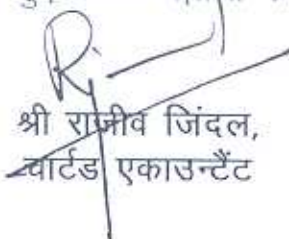 श्री राजीव जिंदल,
चार्टड एकाउन्टैंट